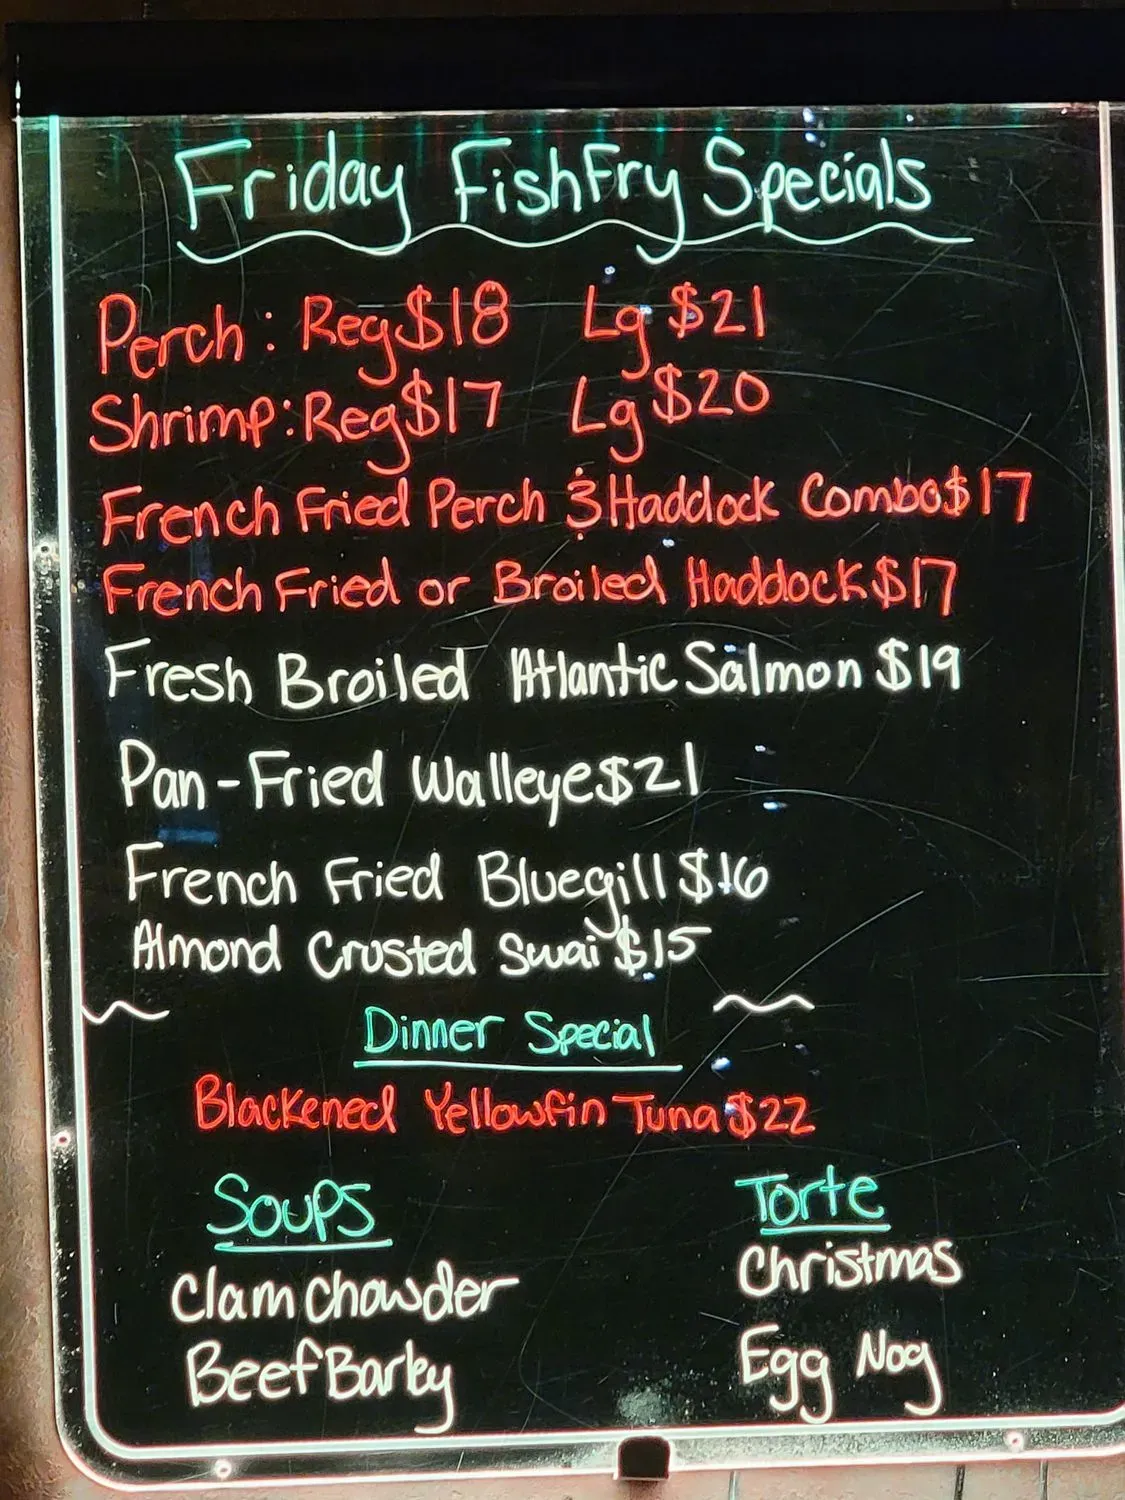 Friday FishFry Specials
Perch: Reg $18 Lg $21
Shrimp: Reg $17 Lg $20
French Fried Perch & Haddock Combo $17
French Fried or Broiled Haddock $17
Fresh Broiled Atlantic Salmon $19
Pan-Fried Walleye $21
French Fried Bluegill $16
Almond Crusted Swai $15
Dinner Special
Blackened Yellowfin Tuna $22
Soups
Clam Chowder
Beef Barley
Torte
Christmas
Egg Nog